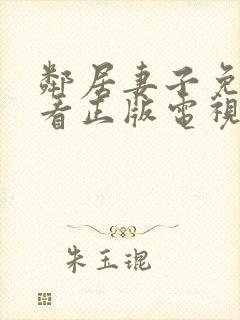 鄰居妻子免
看正版電視
朱玉琨